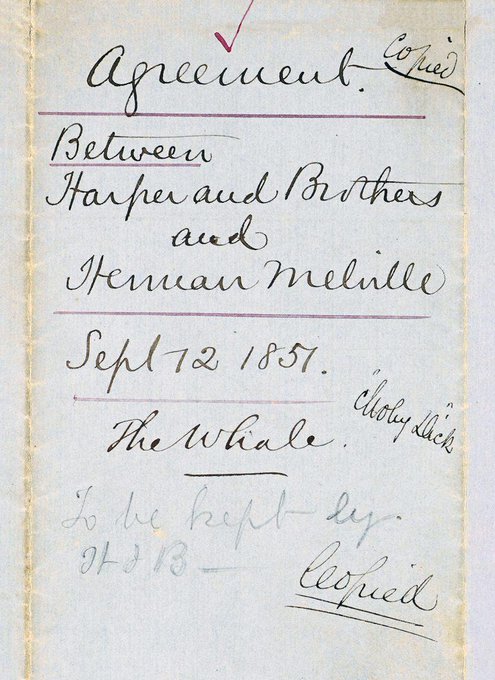 Copied
Agreement.
Between
Harper and Brothers
and
Herman Melville
Sept 12 1851.
"Moby Dick"
The Whale.
To be kept by
H & B —
Copied